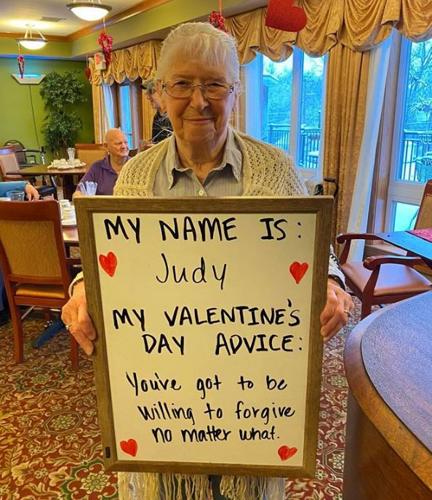 MY NAME IS:
Judy
MY VALENTINE'S
DAY ADVICE:
You've got to be
willing to forgive
no matter what.